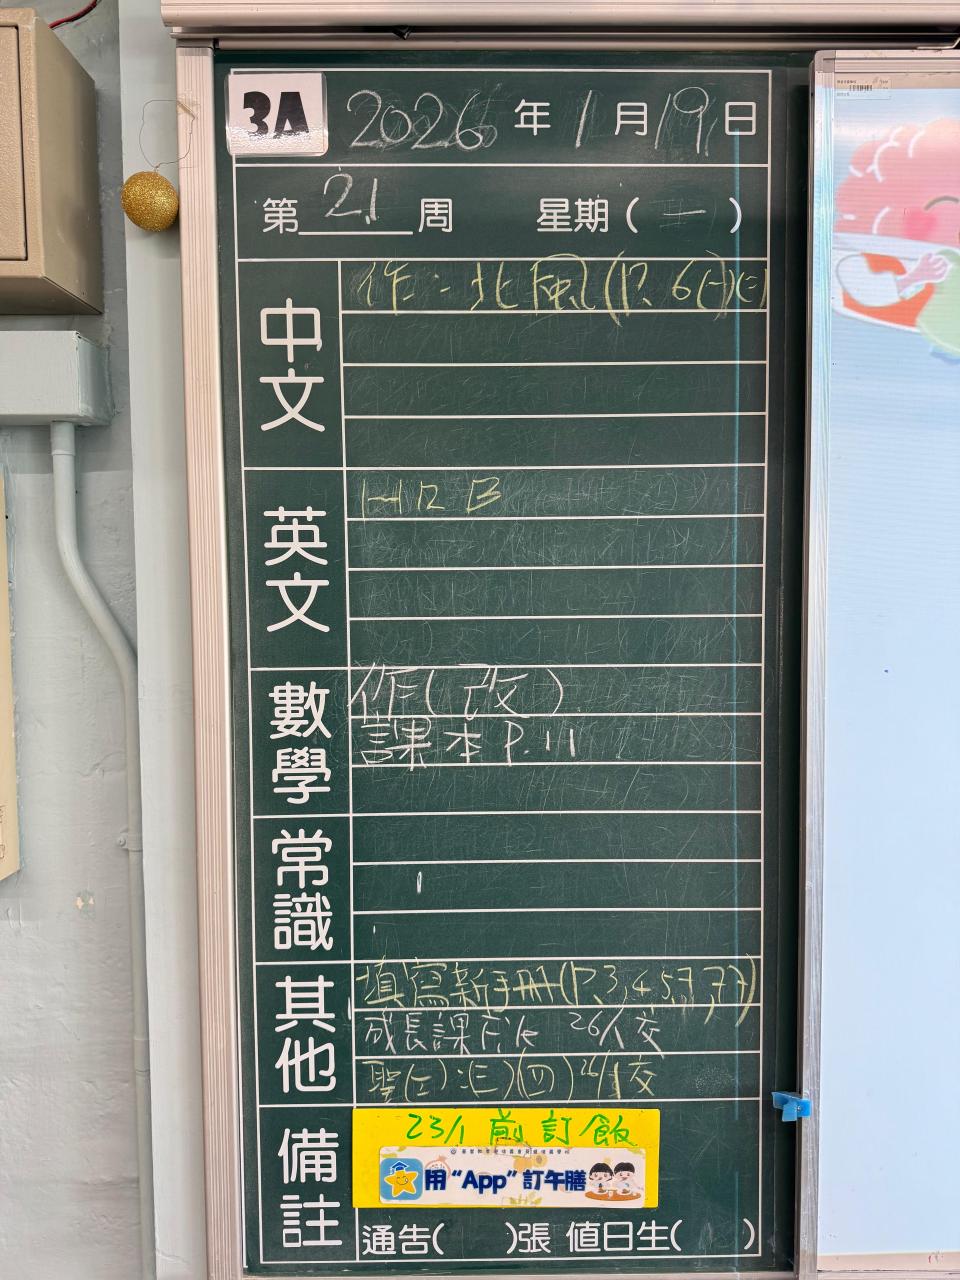 3A 2026年1月19日
第21周 星期(一)
中文
作:北風(P.6(一)(二)
英文
HRB
數學
作(改)
課本P.11
常識
其他
填寫新手冊(P.3,4,5,7,77)
成長課 26/1交
聖(二):(三)(四)26/1交
備註
23/1前訂飯
用“App”訂午膳
通告( )張 值日生( )